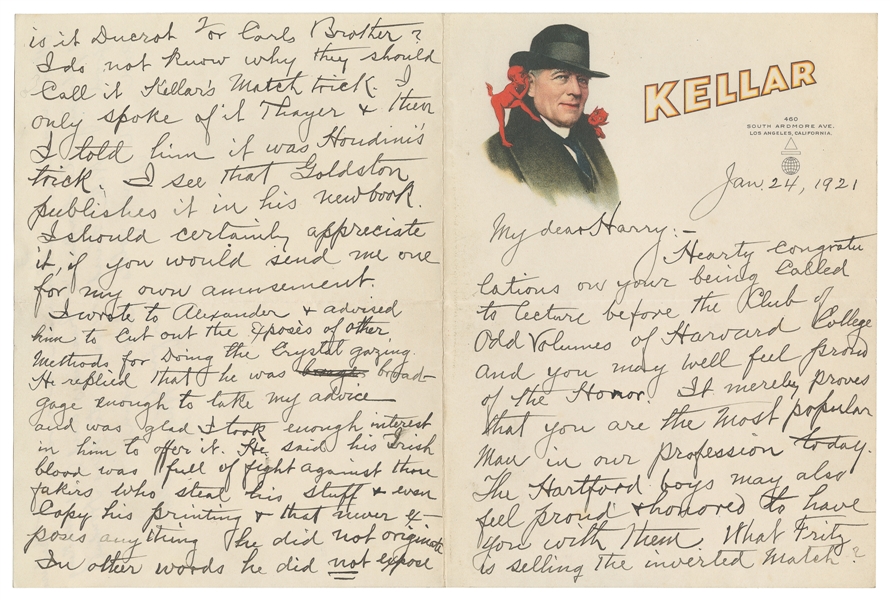 KELLAR
460
SOUTH ARDMORE AVE.
LOS ANGELES, CALIFORNIA.
Jan. 24, 1921
My dear Harry:-
Hearty congratu
lations on your being Called
to lecture before the Club of
Odd Volumes of Harvard College
and you may well feel proud
of the Honor. It merely proves
that you are the most popular
man in our profession today.
The Hartford boys may also
feel proud & honored to have
you with them. What Fritz
is selling the inverted Match?
is it Ducrot or Carls Brother?
I do not know why they should
Call it Kellar's Match trick. I
only spoke of it Thayer & then
I told him it was Houdini's
trick. I see that Goldston
publishes it in his new book.
I should certainly appreciate
it, if you would send me one
for my own amusement.
I wrote to Alexander & advised
him to Cut out the Exposés of other
Methods for doing the Crystal gazing.
He replied that he was broad-
gage enough to take my advice
and was glad I took enough interest
in him to offer it. He said his Irish
blood was full of fight against those
fakirs who steal his stuff & even
Copy his printing & that never Ex-
poses anything he did not originate
In other words he did not expose